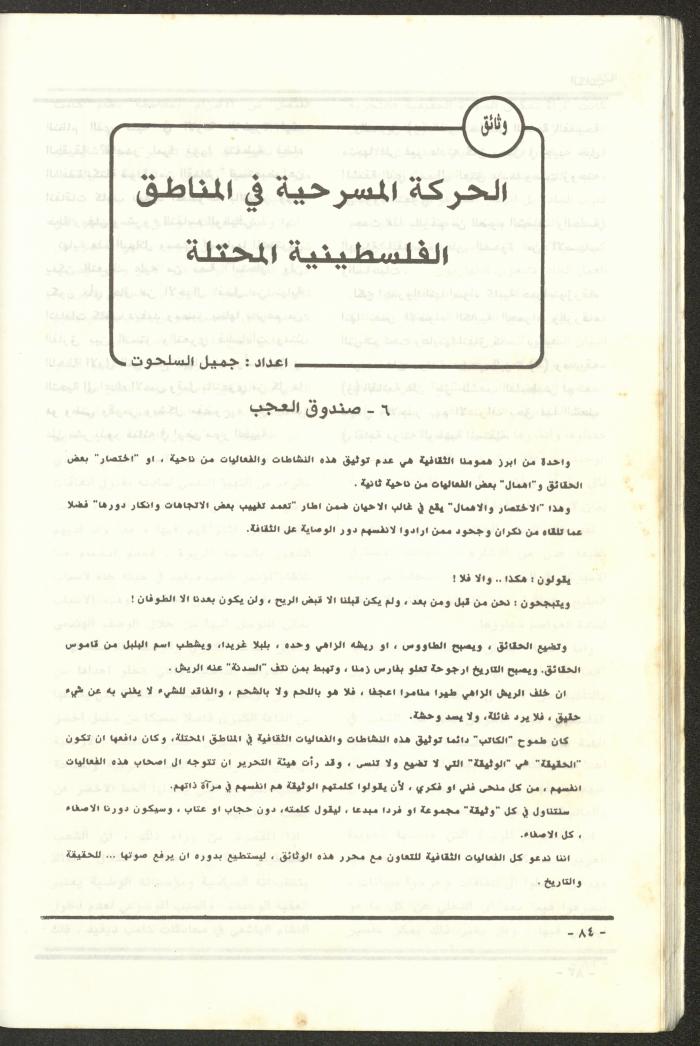 وثائق
الحركة المسرحية في المناطق
الفلسطينية المحتلة
اعداد : جميل السلحوت
٦ - صندوق العجب
واحدة من ابرز همومنا الثقافية هي عدم توثيق هذه النشاطات والفعاليات من ناحية ، او "اختصار" بعض
الحقائق و"اهمال" بعض الفعاليات من ناحية ثانية .
وهذا "الاختصار والاهمال" يقع في غالب الاحيان ضمن اطار "تعمد تغييب بعض الاتجاهات وانكار دورها" فضلا
عما تلقاه من نكران وجحود ممن ارادوا لانفسهم دور الوصاية عل الثقافة.
يقولون : هكذا .. والا فلا !
ويتبجحون : نحن من قبل ومن بعد ، ولم يكن قبلنا الا قبض الريح ، ولن يكون بعدنا الا الطوفان !
وتضيع الحقائق ، ويصبح الطاووس ، او ريشه الزاهي وحده ، بلبلا غريدا، ويشطب اسم البلبل من قاموس
الحقائق. ويصبح التاريخ ارجوحة تعلو بفارس زمنا ، وتهبط بمن نتف "السدنة" عنه الريش .
ان خلف الريش الزاهي طيرا منامرا اعجفا ، فلا هو باللحم ولا بالشحم ، والفاقد للشيء لا يغني به عن شيء
حقيق ، فلا يرد غائلة، ولا يسد وحشة.
كان طموح "الكاتب" دائما توثيق هذه النشاطات والفعاليات الثقافية في المناطق المحتلة، وكان دافعها ان تكون
"الحقيقة" هي "الوثيقة" التي لا تضيع ولا تنسى ، وقد رأت هيئة التحرير ان تتوجه ال اصحاب هذه الفعاليات
انفسهم ، من كل منحى فني او فكري ، لأن يقولوا كلمتهم الوثيقة هم انفسهم في مرآة ذاتهم.
سنتناول في كل "وثيقة" مجموعة او فردا مبدعا ، ليقول كلمته، دون حجاب او عتاب ، وسيكون دورنا الاصفاء
، كل الاصفاء.
اننا ندعو كل الفعاليات الثقافية للتعاون مع محرر هذه الوثائق ، ليستطيع بدوره ان يرفع صوتها ... للحقيقة
والتاريخ .
- ٨٤ -